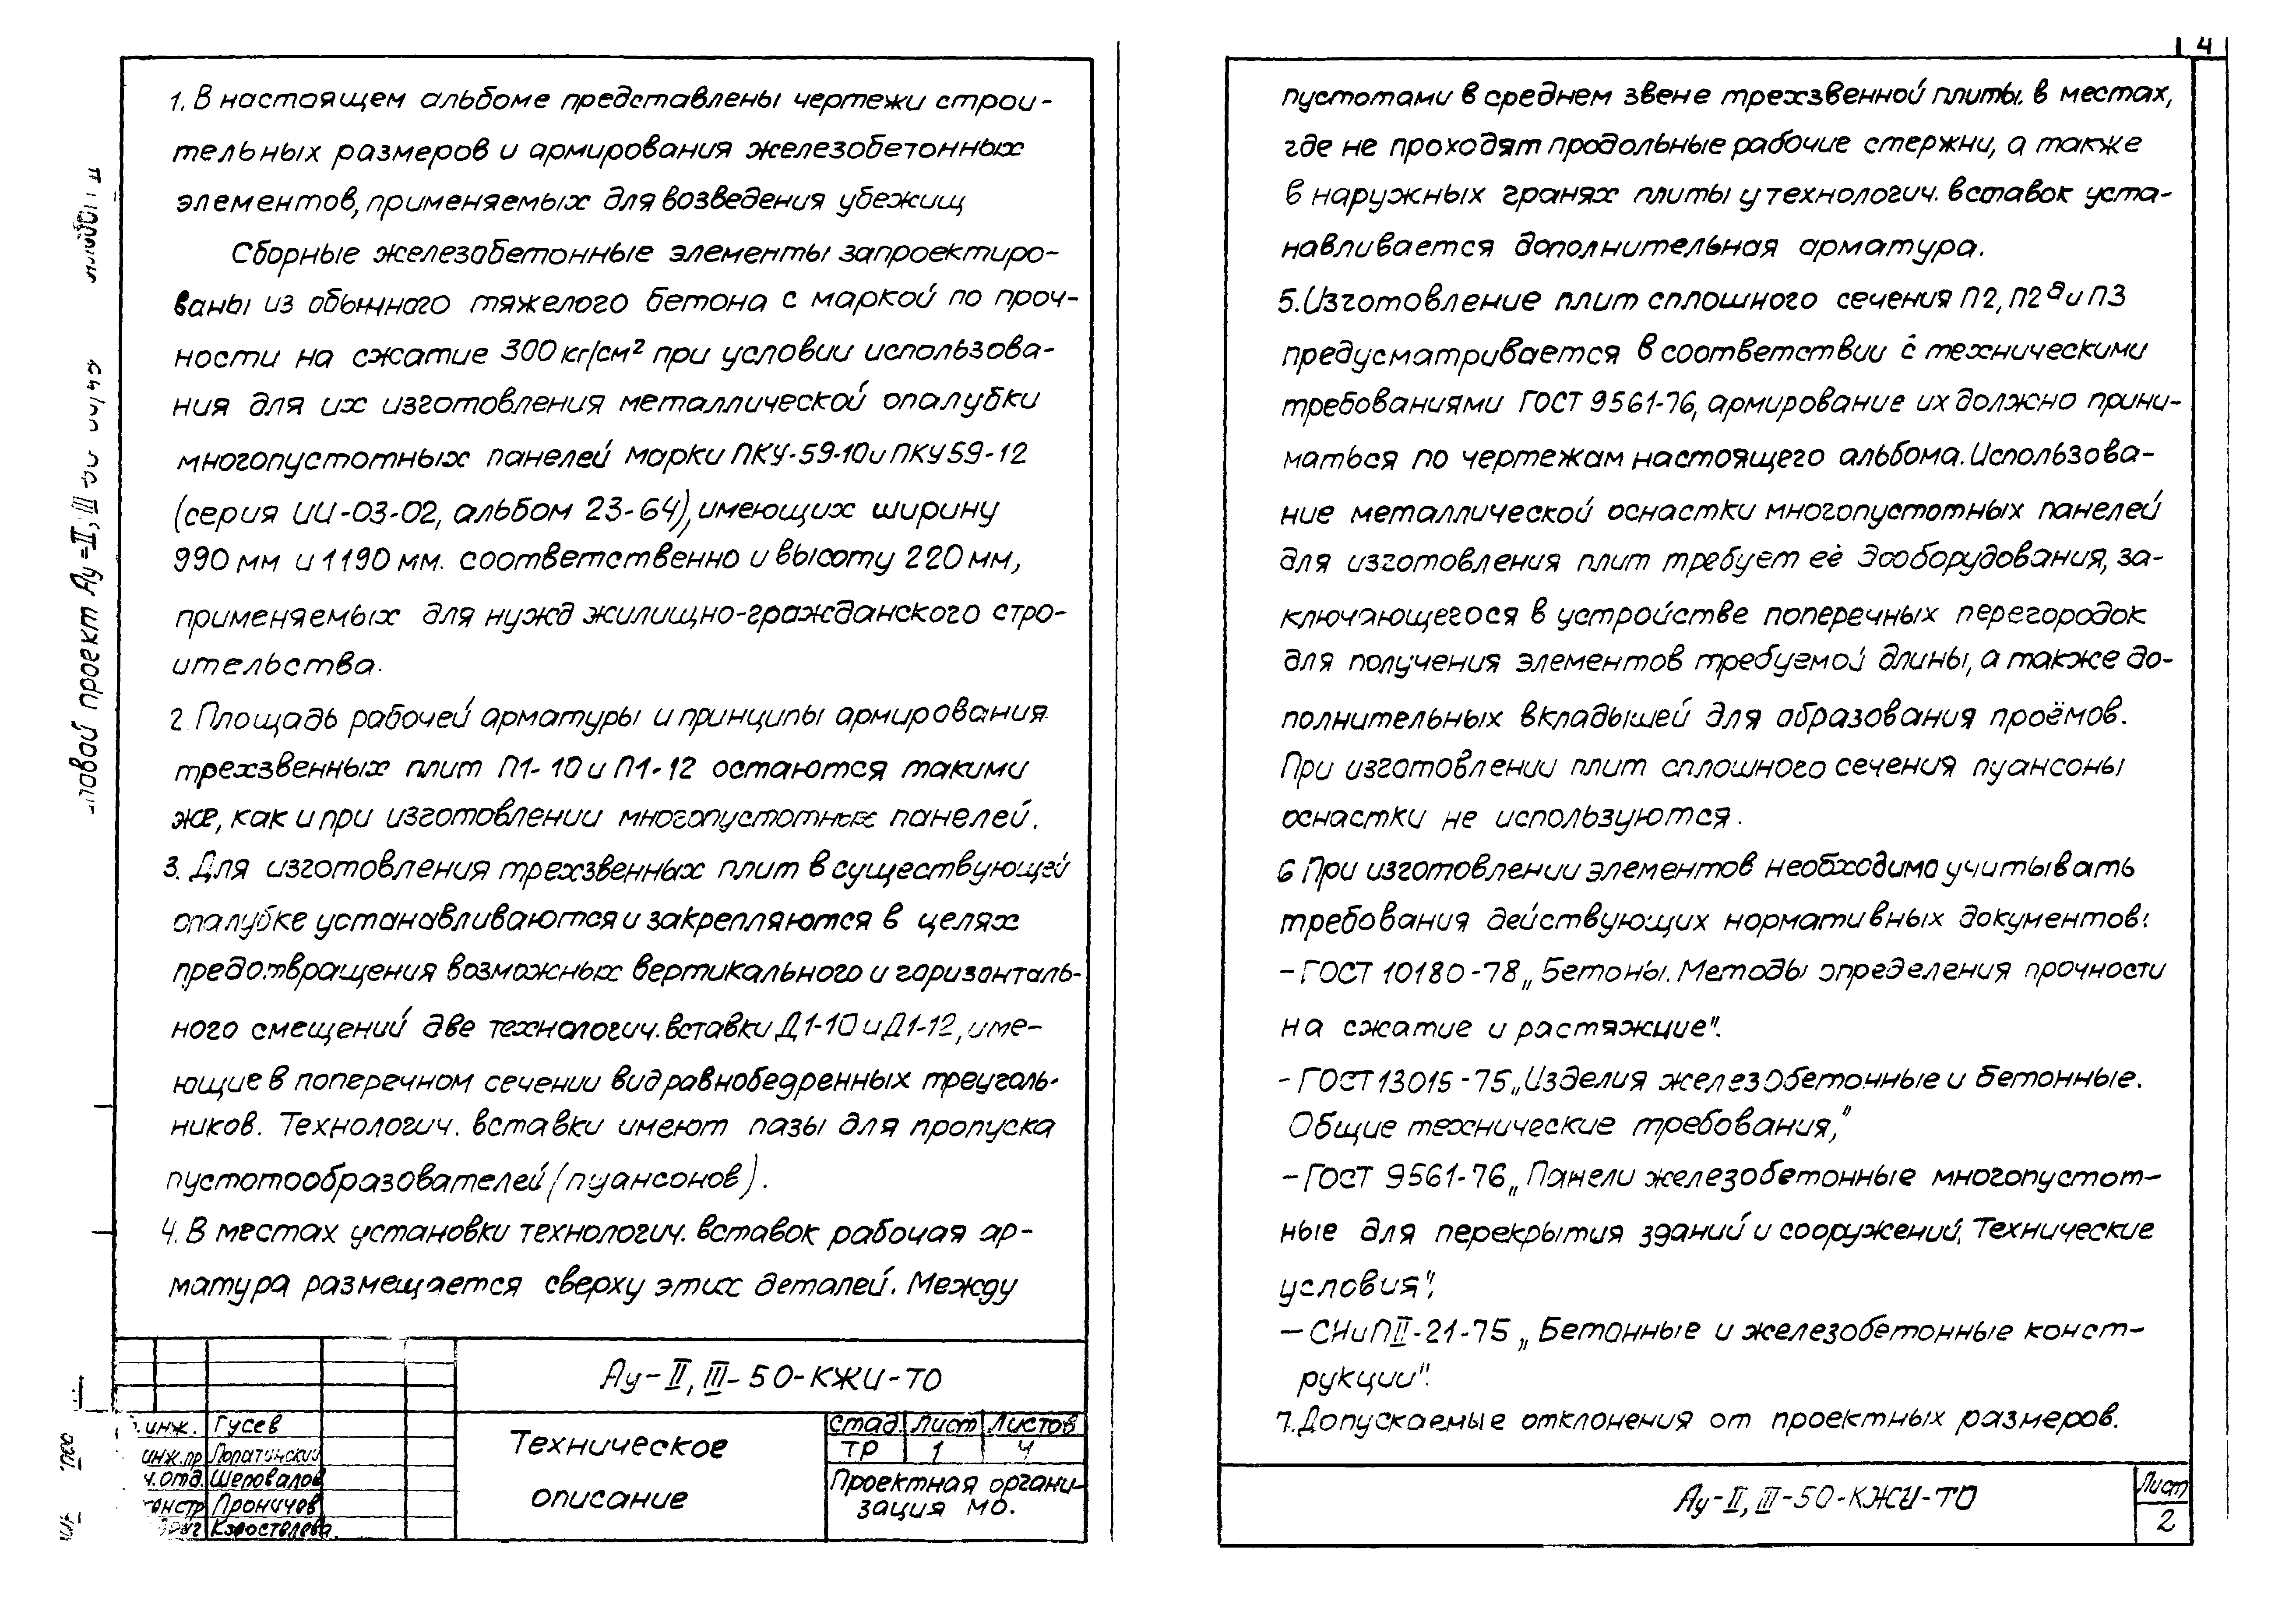 1. В настоящем альбоме представлены чертежи строи-
тельных размеров и армирования железобетонных
элементов, применяемых для возведения убежищ
Сборные железобетонные элементы запроектиро-
ваны из обычного тяжелого бетона с маркой по проч-
ности на сжатие 300 кг/см² при условии использова-
ния для их изготовления металлической опалубки
многопустотных панелей марки ПКУ-59-10 и ПКУ 59-12
(серия ИИ-03-02, альбом 23-64), имеющих ширину
990 мм и 1190 мм. соответственно и высоту 220 мм,
применяемых для нужд жилищно-гражданского стро-
ительства.
2. Площадь рабочей арматуры и принципы армирования
трехзвенных плит П1-10 и П1-12 остаются такими
же, как и при изготовлении многопустотных панелей.
3. Для изготовления трехзвенных плит в существующей
опалубке устанавливаются и закрепляются в целях
предотвращения возможных вертикального и горизонталь-
ного смещений две технологич. вставки Д1-10 и Д1-12, име-
ющие в поперечном сечении вид равнобедренных треуголь-
ников. Технологич. вставки имеют пазы для пропуска
пустотообразователей (пуансонов).
4. В местах установки технологич. вставок рабочая ар-
матура размещается сверху этих деталей. Между
Ау-II, III-50-КЖИ-ТО
инж. Гусев
инж.пр
ч. отд. Шеровалов
констр Проничев
Техническое
описание
Стад. Лист Листов
ТР 1 4
Проектная органи-
зация МО.
повой проект Ау-II, III
4
пустотами в среднем звене трехзвенной плиты. в местах,
где не проходят продольные рабочие стержни, а также
в наружных гранях плиты у технологич. вставок уста-
навливается дополнительная арматура.
5. Изготовление плит сплошного сечения П2, П2ª и П3
предусматривается в соответствии с техническими
требованиями ГОСТ 9561-76, армирование их должно прини-
маться по чертежам настоящего альбома. Использова-
ние металлической оснастки многопустотных панелей
для изготовления плит требует её дооборудования, за-
ключающегося в устройстве поперечных перегородок
для получения элементов требуемой длины, а также до-
полнительных вкладышей для образования проёмов.
При изготовлении плит сплошного сечения пуансоны
оснастки не используются.
6 При изготовлении элементов необходимо учитывать
требования действующих нормативных документов:
- ГОСТ 10180-78 „Бетоны. Методы определения прочности
на сжатие и растяжцие".
- ГОСТ 13015-75 „Изделия железобетонные и бетонные.
Общие технические требования,"
- ГОСТ 9561-76 „Панели железобетонные многопустот-
ные для перекрытия зданий и сооружений. Технические
условия",
- СНиП II-21-75 „Бетонные и железобетонные конст-
рукции".
7. Допускаемые отклонения от проектных размеров.
Ау-II, III-50-КЖИ-ТО
Лист
2